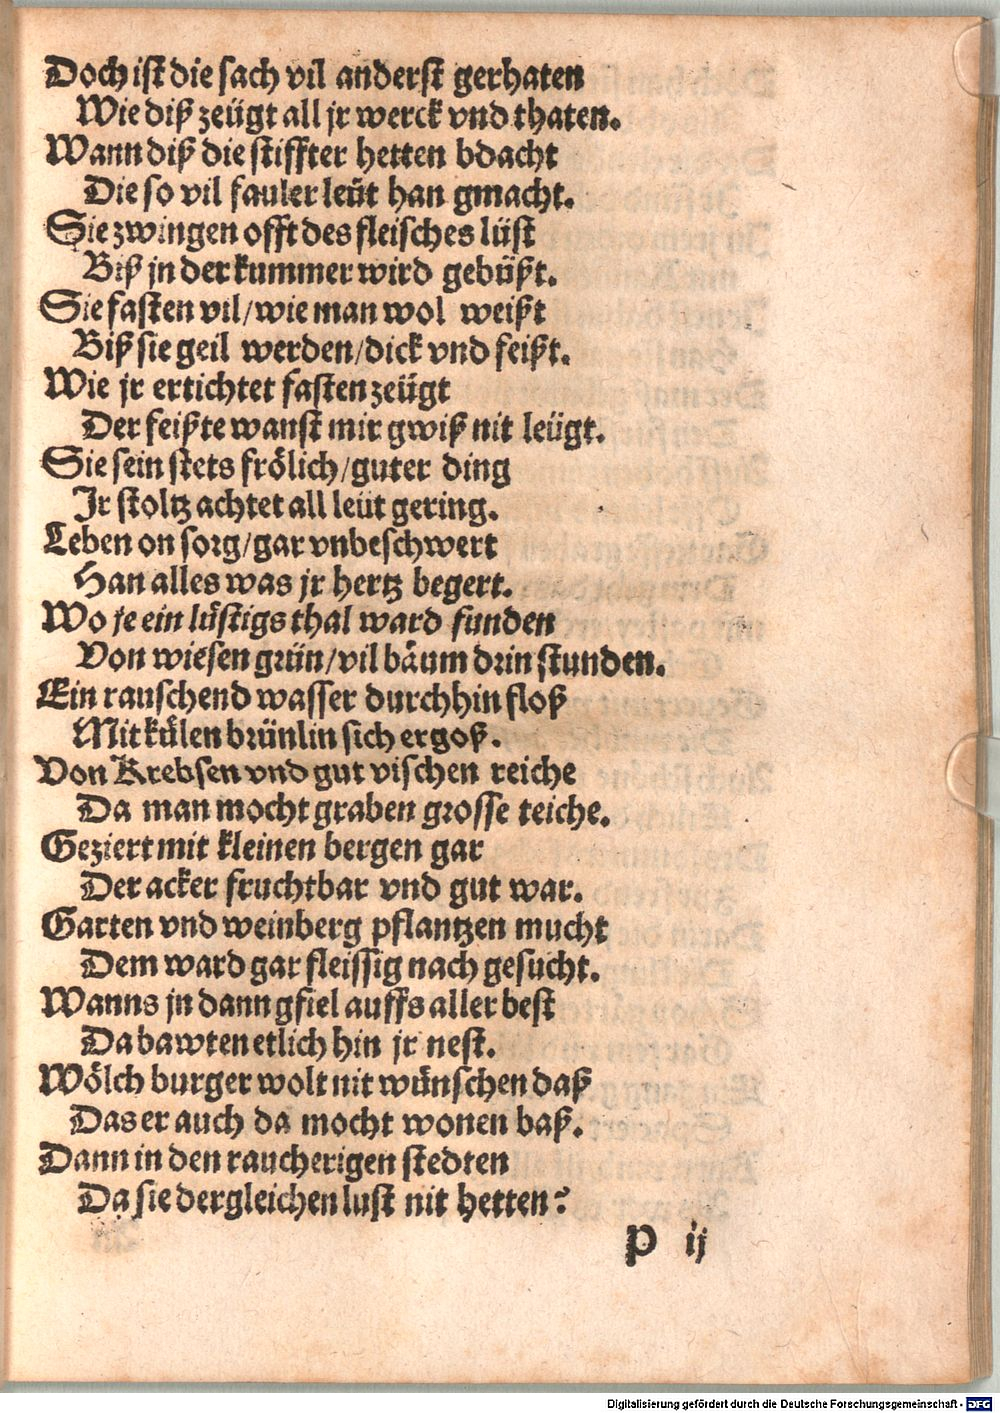 Doch ist die sach vil anderst gerhaten
Wie diß zeügt all jr werck vnd thaten.
Wann diß die stiffter hetten bdacht
Die so vil fauler leüt han gmacht.
Sie zwingen offt des fleisches lüst
Biß jn der kummer wird gebüßt.
Sie fasten vil/wie man wol weißt
Biß sie geil werden/dick vnd feißt.
Wie jr ertichtet fasten zeügt
Der feißte wanst mir gwiß nit leügt.
Sie sein stets frölich/guter ding
Jr stoltz achtet all leüt gering.
Leben on sorg/gar vnbeschwert
Han alles was jr hertz begert.
Wo je ein lüstigs thal ward funden
Von wiesen grün/vil bäum drin stunden.
Ein rauschend wasser durchhin floß
Mit külen brünlin sich ergoß.
Von Krebsen vnd gut vischen reiche
Da man mocht graben grosse teiche.
Geziert mit kleinen bergen gar
Der acker fruchtbar vnd gut war.
Garten vnd weinberg pflantzen mucht
Dem ward gar fleissig nach gesucht.
Wanns jn dann gfiel auffs aller best
Da bawten etlich hin jr nest.
Wölch burger wolt nit wünschen daß
Das er auch da mocht wonen baß.
Dann in den raucherigen stedten
Da sie dergleichen lust nit hetten?
P ij
Digitalisierung gefördert durch die Deutsche Forschungsgemeinschaft - DFG